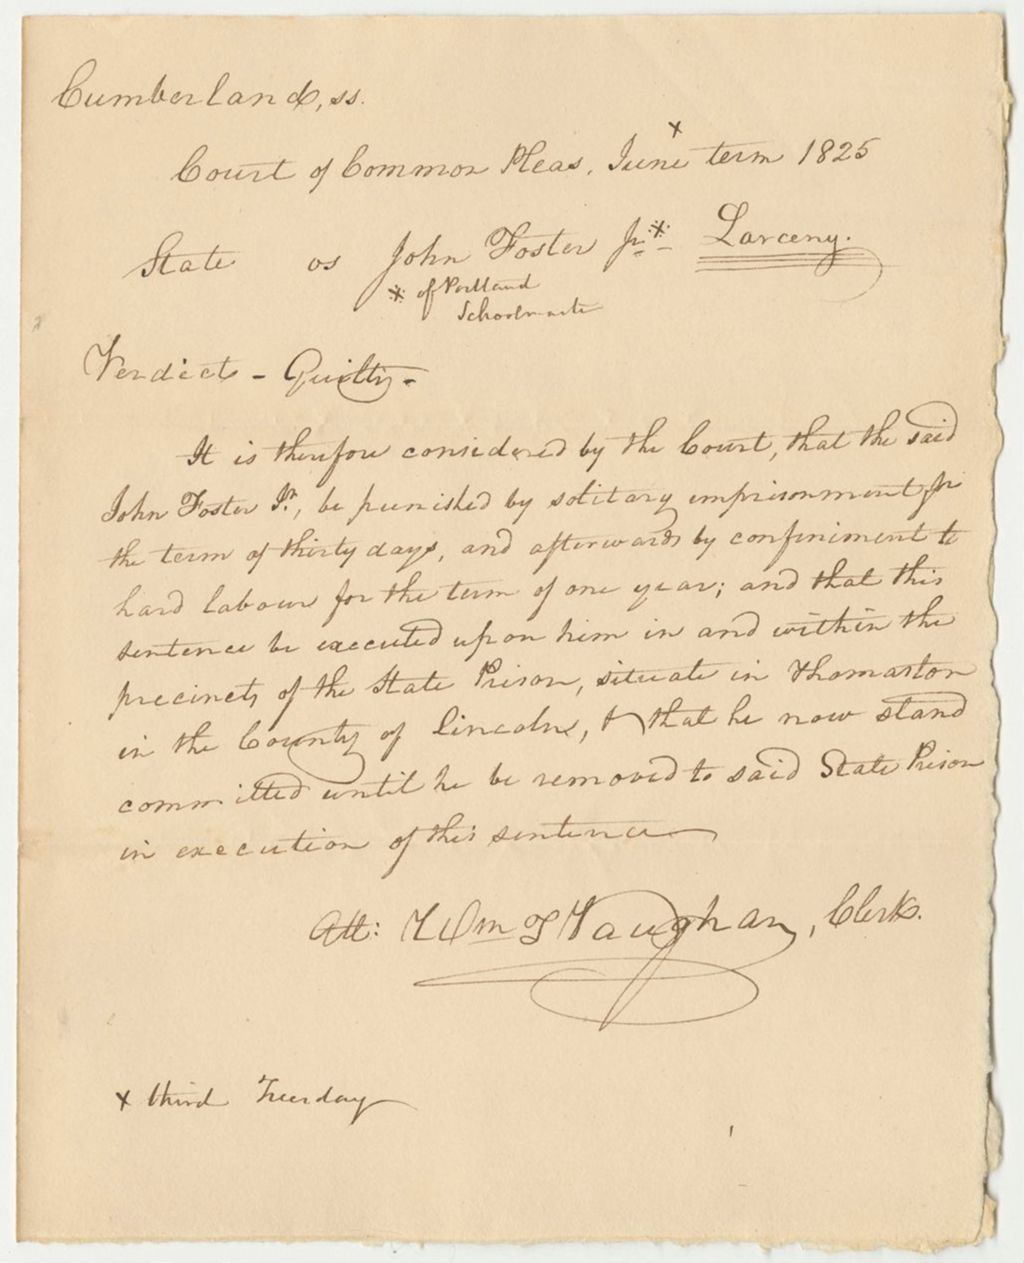 Cumberland, ss.
Court of Common Pleas, June x term 1825
State vs John Foster Jr. * Larceny.
* of Portland
Schoolmaster
Verdict - Guilty -
It is therefore considered by the Court, that the said
John Foster Jr, be punished by solitary imprisonment for
the term of thirty days, and afterwards by confiniment to
hard labour for the term of one year; and that this
sentence be executed upon him in and within the
precincts of the State Prison, situate in Thomaston
in the County of Lincoln, & that he now stand
committed until he be removed to said State Prison
in execution of this sentence
Att: Wm T Vaughan, Clerk.
x third Tuesday